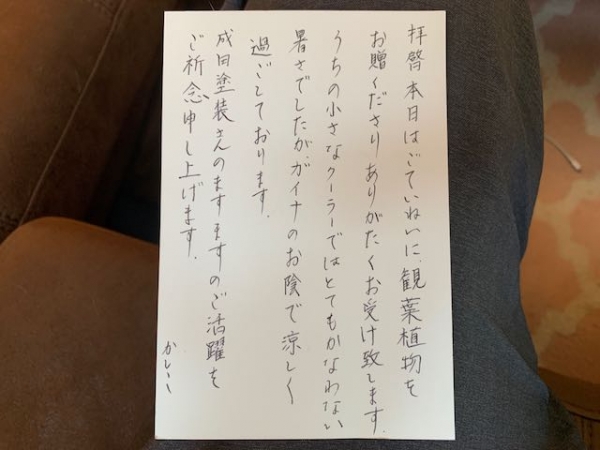 拝啓本日はごていねいに、観葉植物を
お贈くださりありがたくお受け致します。
うちの小さなクーラーではとてもかなわない
暑さでしたが、ガイナのお陰で涼しく
過ごしております。
成田塗装さんのますますのご活躍を
ご祈念申し上げます。
かしこ